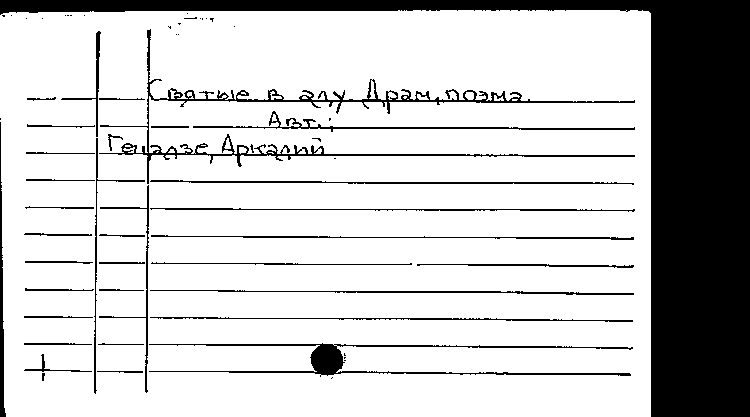 Святые в аду. Драм. поэма.
Авт.:
Гецадзе, Аркадий